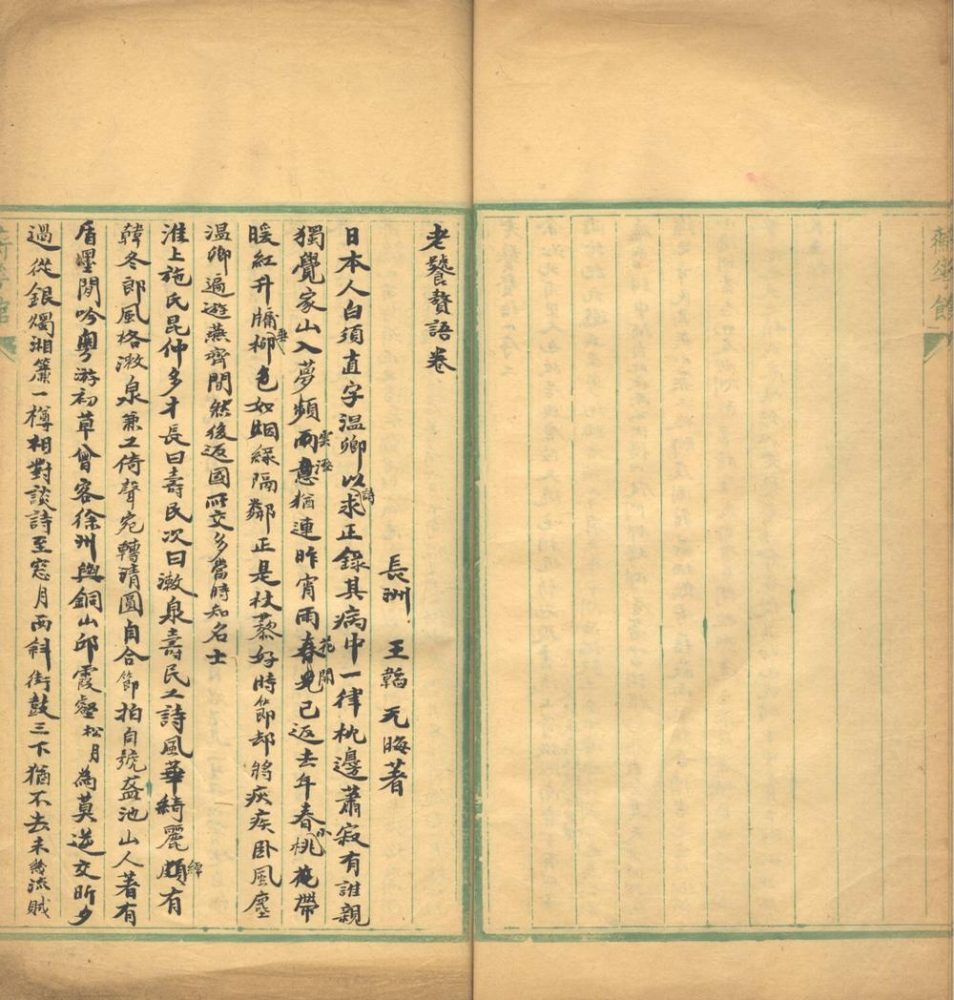 蘅華館
老饕贅語卷
長洲 王韜 无晦著
日本人白須直字温卿以詩求正錄其病中一律枕邊蕭寂有誰親
獨覺家山入夢頻雨意猶連昨宵雨春已返去年春小桃花帶
暖紅升牖垂柳色如烟綠隔鄰正是杖藜好時節却將疢疾卧風塵
温卿遍遊燕齊間然後返國所交多當時知名士
淮上施氏昆仲多才長曰壽民次曰漱泉壽民工詩風華綺麗頗有
韓冬郎風格漱泉兼工倚聲宛轉清圓自合節拍自號盋池山人著有
盾墨閒吟粵游初草曾客徐州與銅山邱霞壑松月為莫逆交昕夕
過從銀燭湘簾一樽相對談詩至窓月西斜街鼓三下猶不去未幾流賊